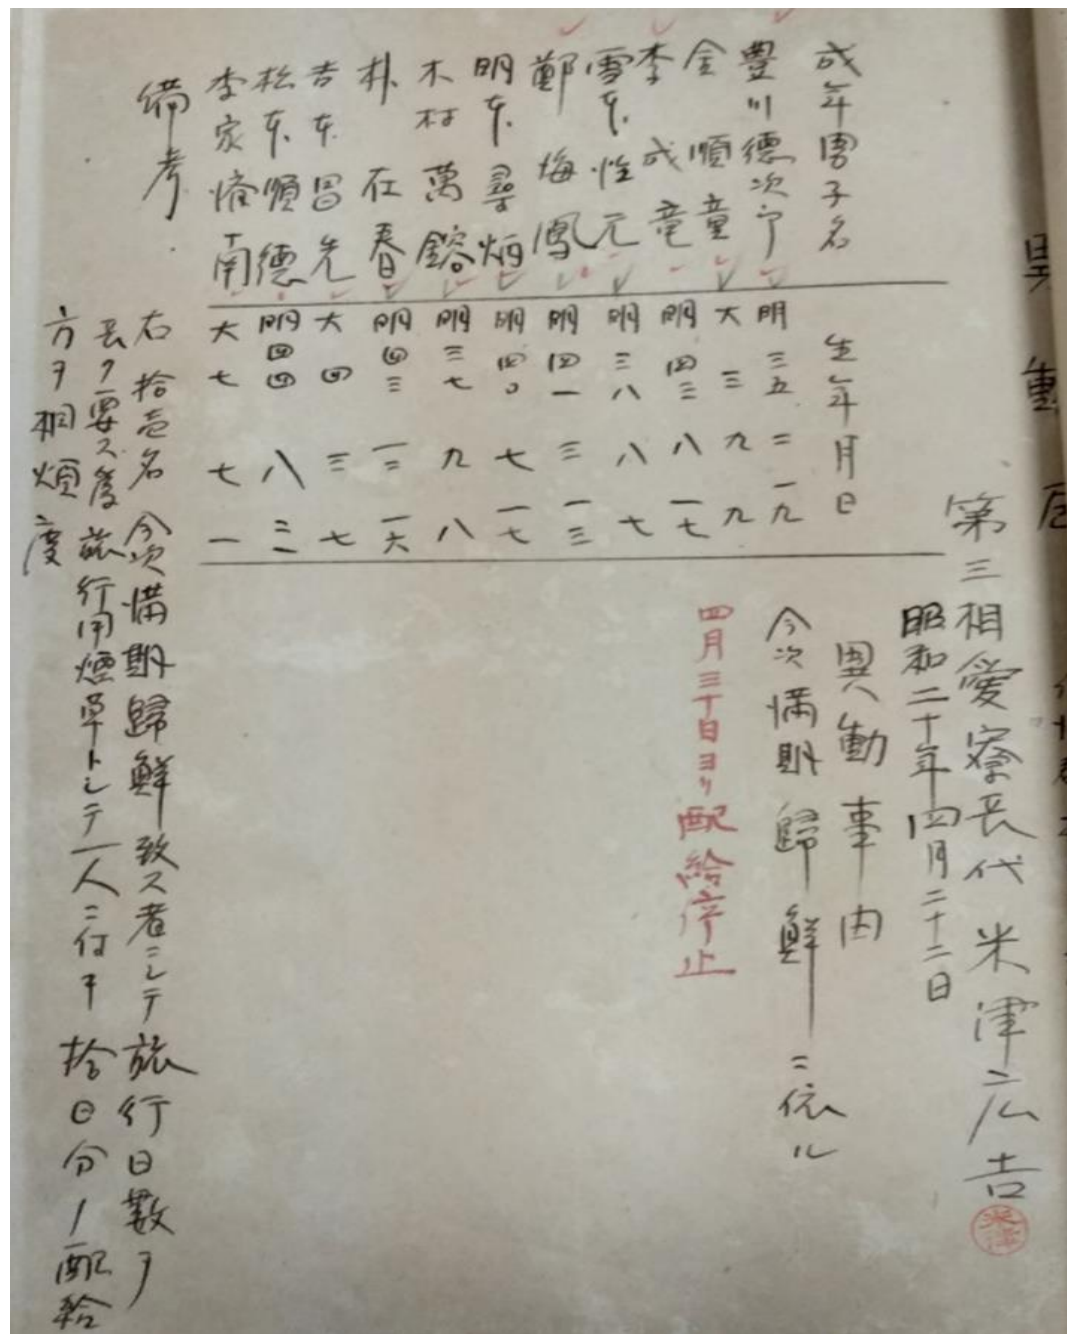 異動届
第三相愛寮長代 米津広吉
米津
昭和二十年四月二十二日
異動事由
今次満期歸鮮ニ依ル
四月三十日ヨリ配給停止
成年男子名 生年月日
豊川德次郎 明三五 二 一九
金順童 大三 九 九
李成竜 明四三 八 一七
雪本性元 明三八 八 七
鄭梅鳳 明四一 三 一三
明本尋炳 明四〇 七 一七
木村萬鎔 明三七 九 八
朴在春 明四三 一二 一六
吉本昌先 大四 三 七
松本順德 明四四 八 二一
李家 南 大七 七 一
備考
右拾壱名今次満期歸鮮致ス者ニシテ旅行日數ヲ
長ク要ス為旅行用煙草トシテ一人ニ付キ拾日分ノ配給
方ヲ相煩度